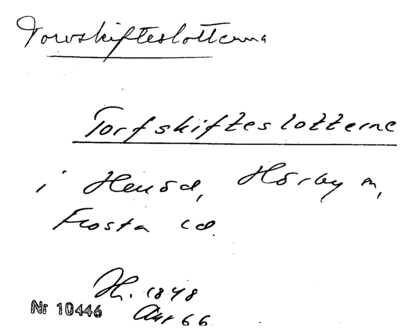 Torvskifteslotterna
Torfskifteslotterne
i Heuöd, Hörby m,
Frosta cd.
H. 1848
Akt 66
Nr 10446